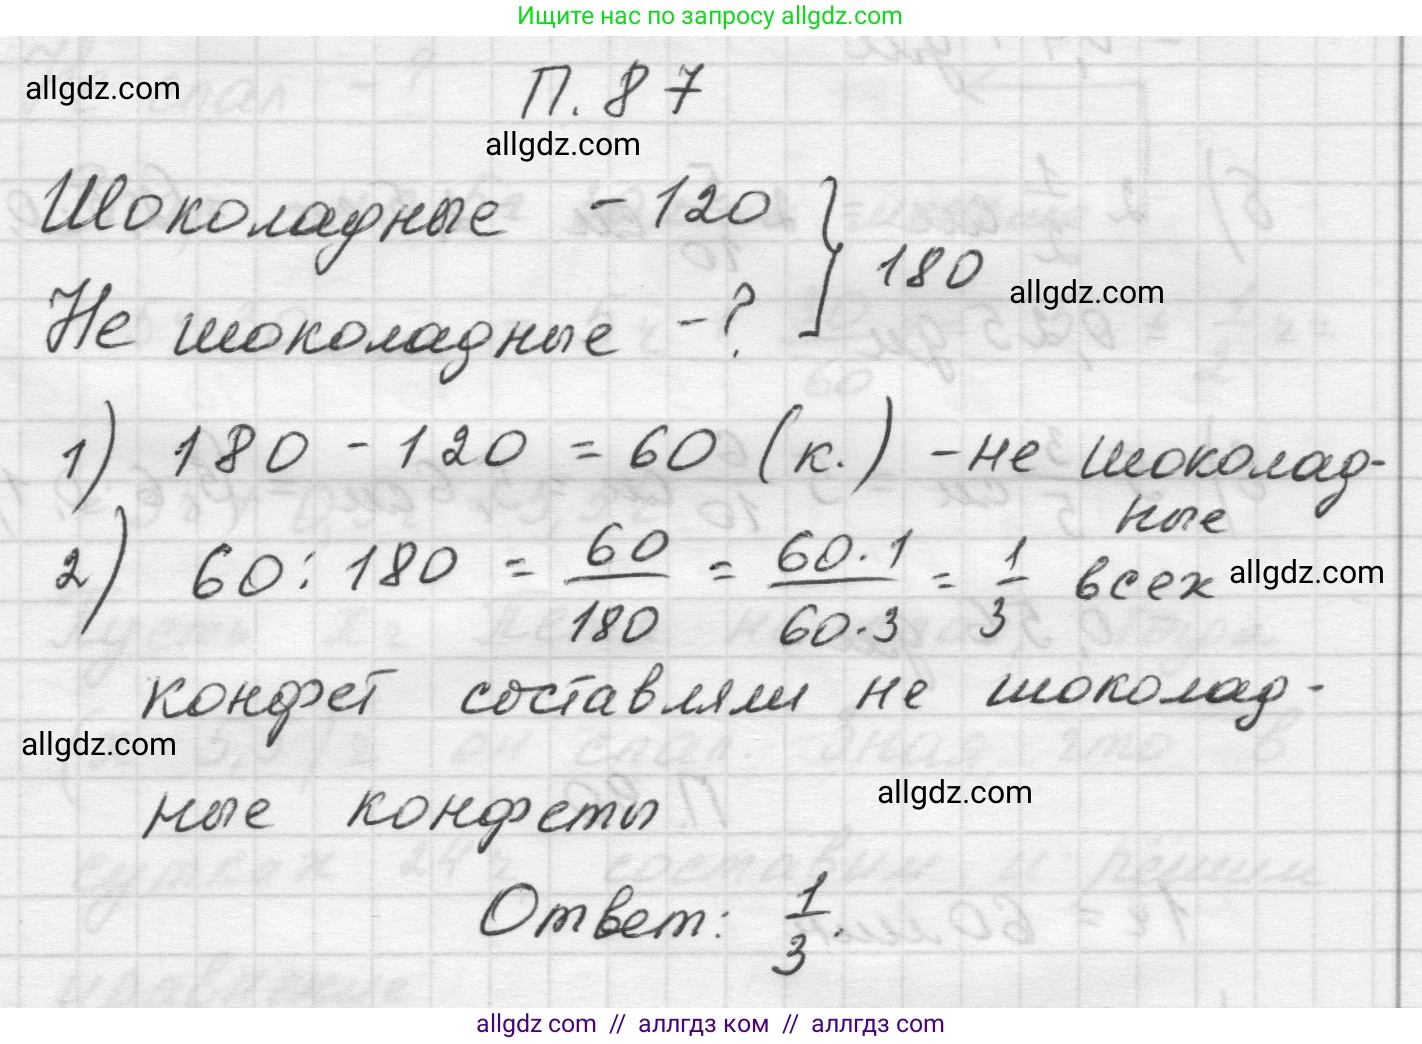 Ищите нас по запросу allgdz.com
allgdz.com
П. 87
allgdz.com
Шоколадные - 120
Не шоколадные - ? } 180
allgdz.com
1) 180 - 120 = 60 (к.) - не шоколад-
ные
2) 60 : 180 = 60/180 = 60·1/60·3 = 1/3 всех
allgdz.com
конфет составляли не шоколад-
allgdz.com
ные конфеты
allgdz.com
Ответ: 1/3.
allgdz.com // аллгдз ком // allgdz.com